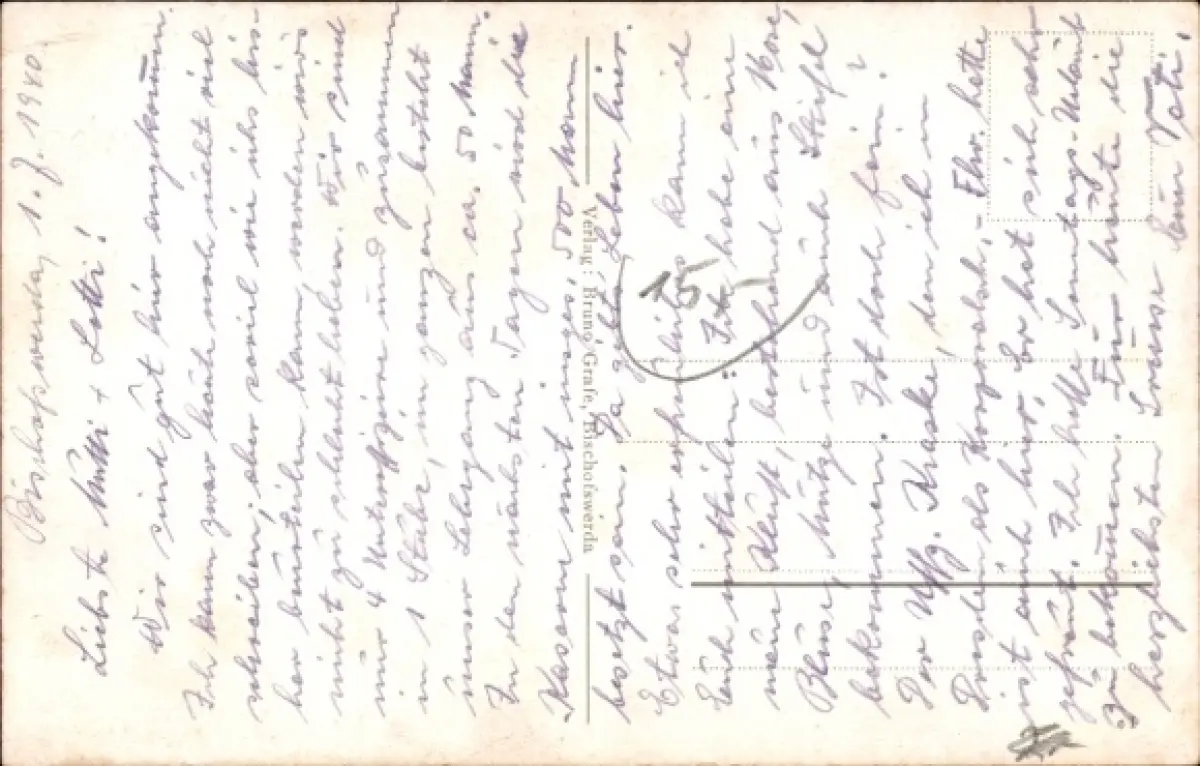 Bischofswerda, 1.7.1940.
Liebste Mutti + Lotti!
Wir sind gut hier angekommen.
Ich kann zwar heute noch nicht viel
schreiben; aber soviel wie ichs bis
her beurteilen kann, werden wirs
nicht zu schlecht haben. Wir sind
nur 4 Unteroffziere und zusammen
in 1 Stube, im ganzen besteht
unser Lehrgang aus ca. 50 Mann.
In den nächsten Tagen wird die
Kaserne mit insges. 500 Mann
besetzt sein. Da gibts Leben hier.
Etwas sehr erfreuliches kann ich
Euch mitteilen: Ich habe eine
neue Kluft, bestehend aus Hose,
Bluse, Mütze und auch Stiefel
bekommen. Ist doch fein!
Der Uffz. Kraske, den ich in
Dresden als Korporalsch.-Fhr. hatte
ist auch hier, er hat sich sehr
gefreut. Ich hoffe Sonntags-Urlaub
zu bekommen. Für heute die
herzlichsten Grüsse Euer Vati.
Verlag: Bruno Grafe, Bischofswerda
15,-